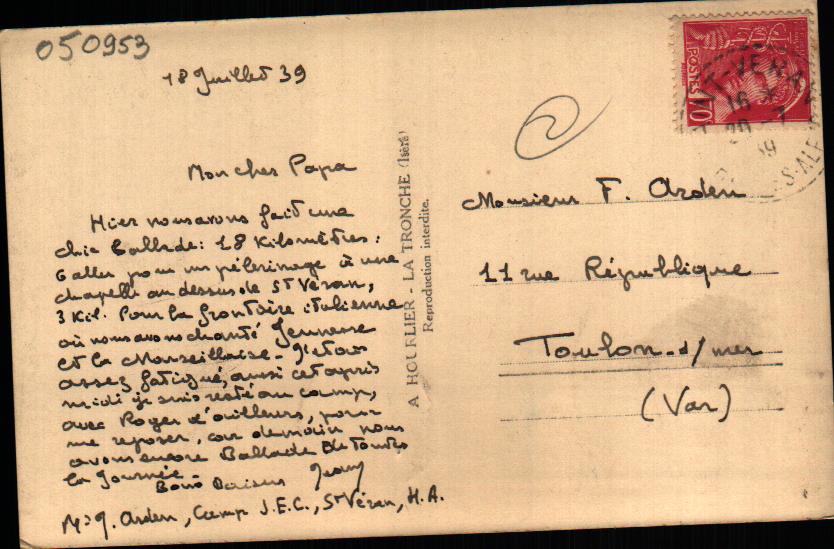 050953
18 Juillet 39
Mon cher Papa
Hier nous avons fait une
chic Ballade: 18 Kilomètres:
6 aller pour un pélerinage à une
chapelle au dessus de St Véran,
3 Kil. Pour la frontière italienne
où nous avons chanté Jeunesse
et la Marseillaise - J'étais
assez fatigué, aussi cet après
midi je suis resté au camp,
avec Roger d'ailleurs, pour
me reposer, car demain nous
avons encore Ballade de toute
la journée -
Bons Baisers Jean
Mr J. Arden, Camp J.E.C., St Véran, H.A.
A HOURLIER - LA TRONCHE (Isère)
Reproduction interdite.
POSTES
70
NT-VERAN
16 *
20 -7
39
S-ALP
Monsieur F. Arden
11 rue République
Toulon-s/mer
(Var)